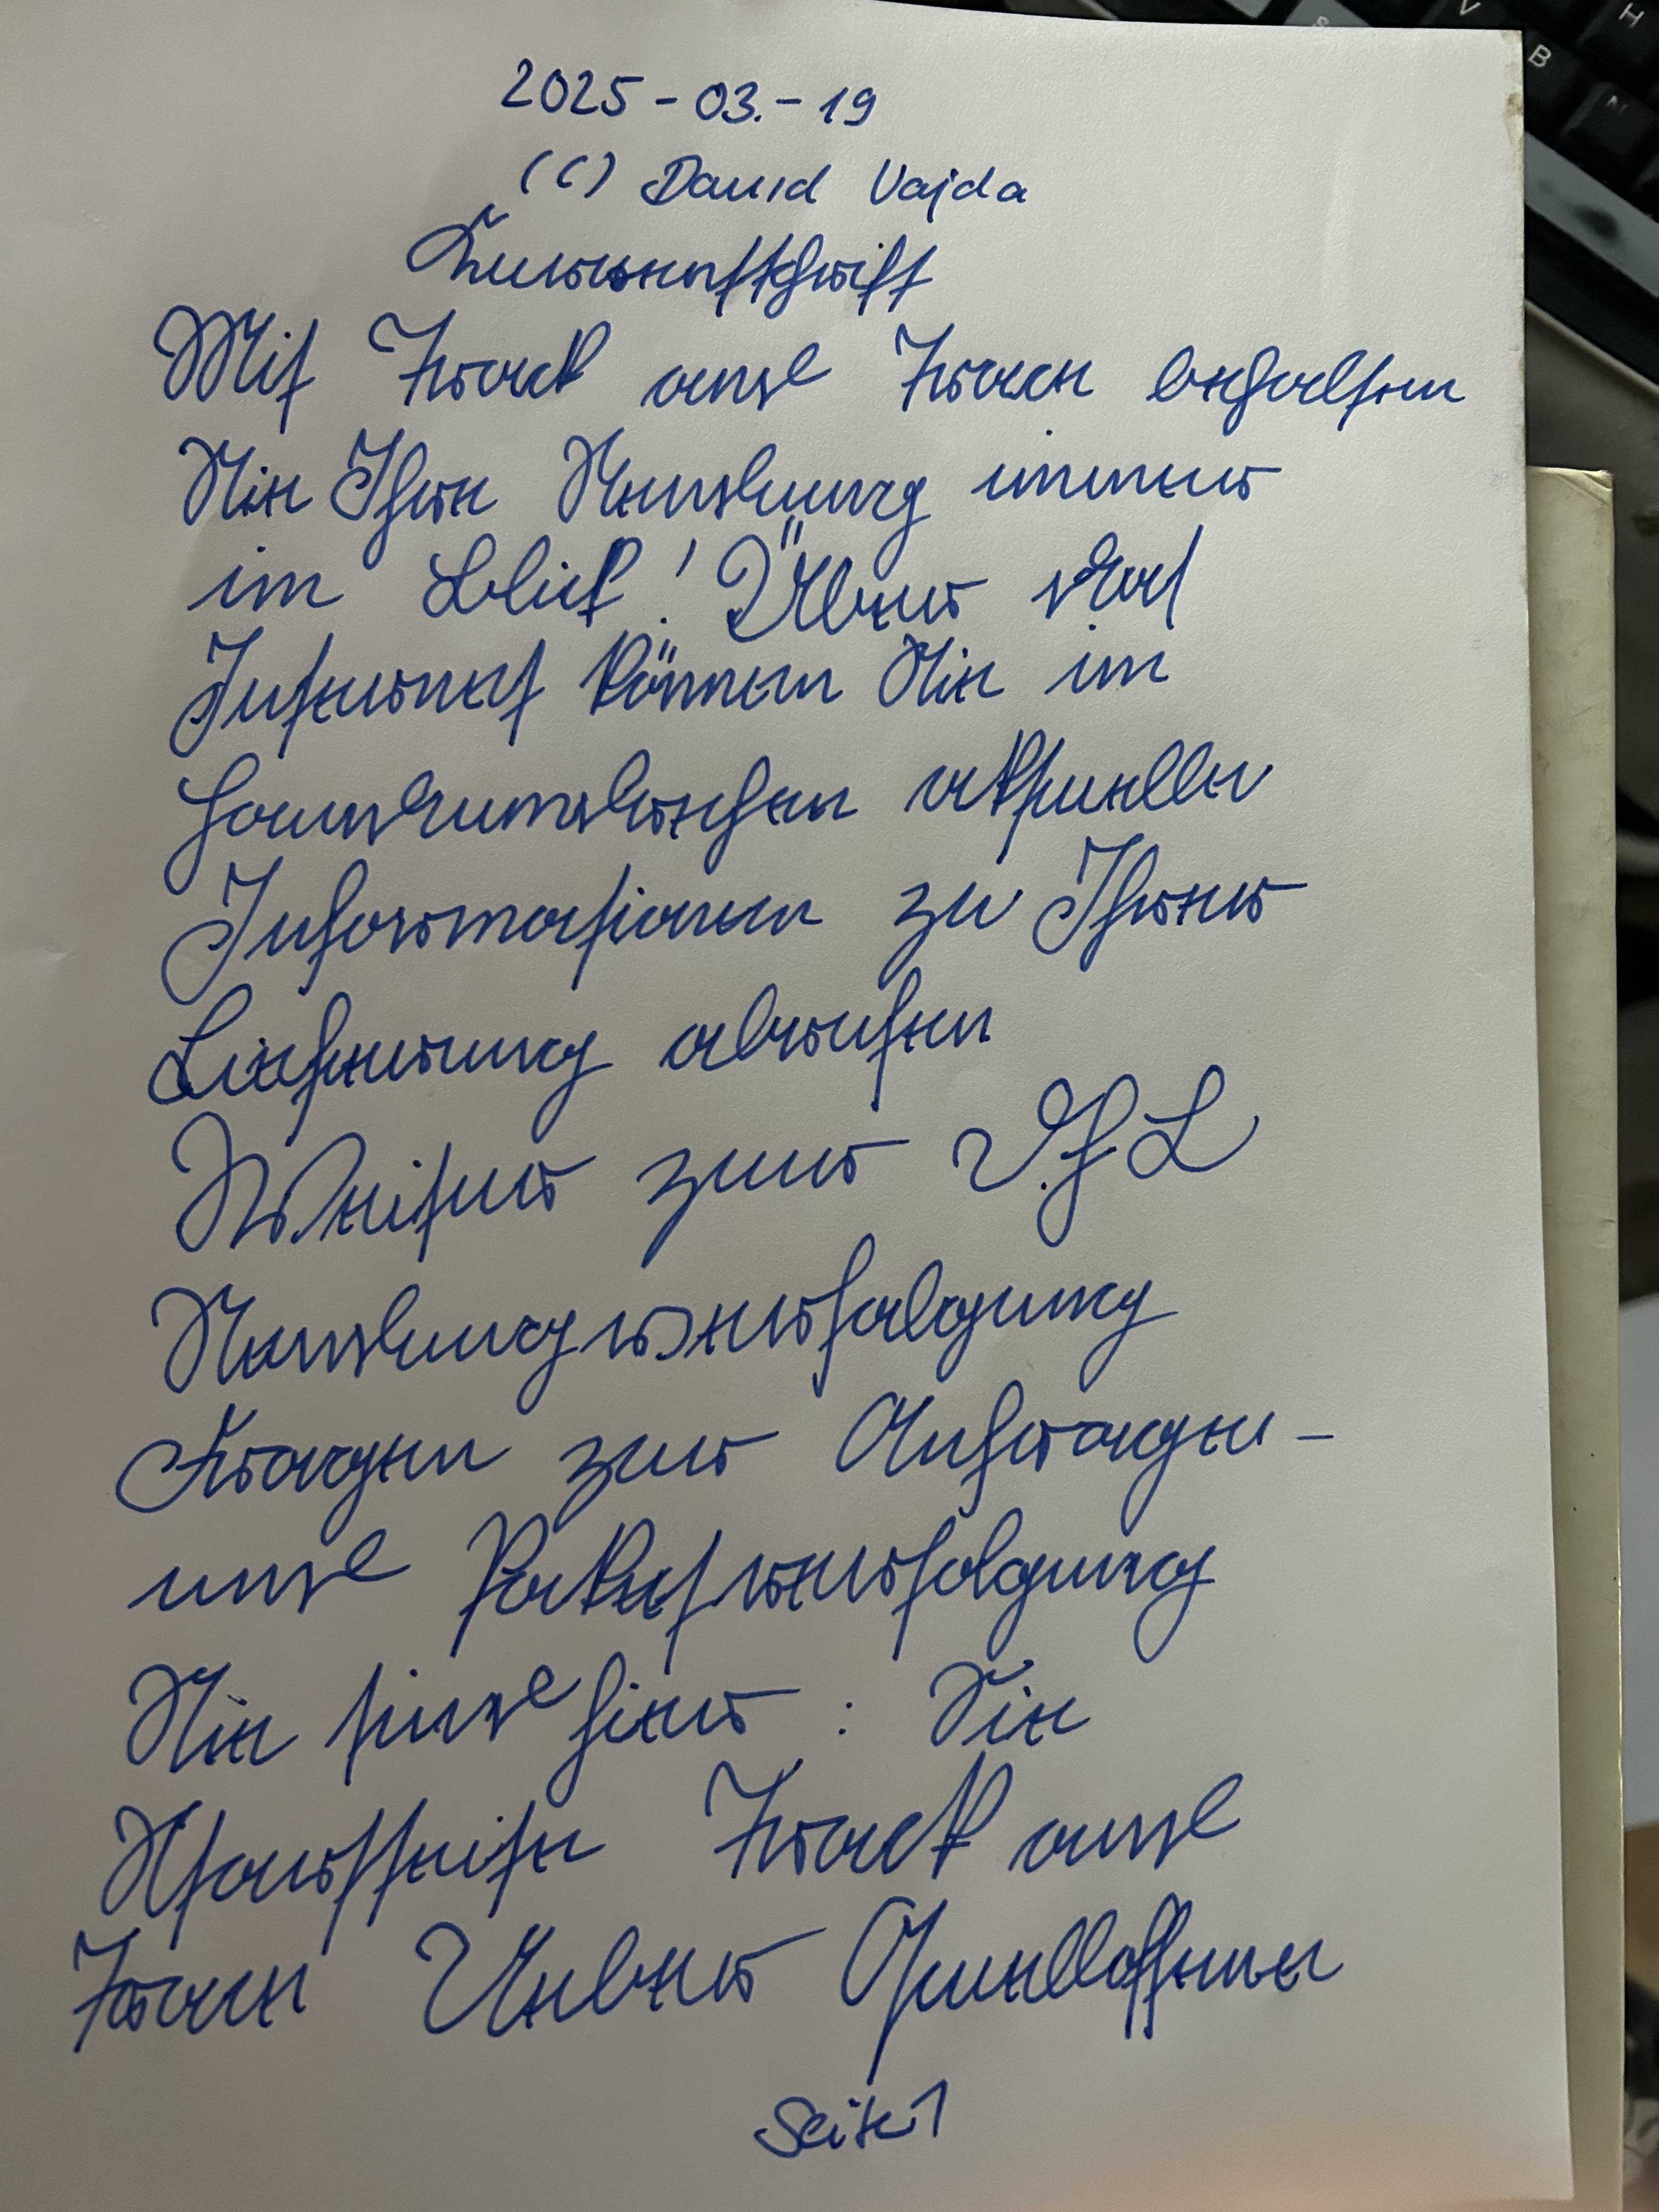 2025-03.-19
(C) David Vajda
Kurrentschrift
Mit Track and Trace behalten
Sie Ihre Sendung immer
im Blick! Über das
Internet können Sie im
Handumdrehen aktuelle
Informationen zu Ihrer
Lieferung abrufen
Weiter zur DHL
Sendungsverfolgung
Fragen zur Anfrage-
und Paketverfolgung
Sie sind hier: Die
Startseite Track and
Trace Ueber
Seite 1